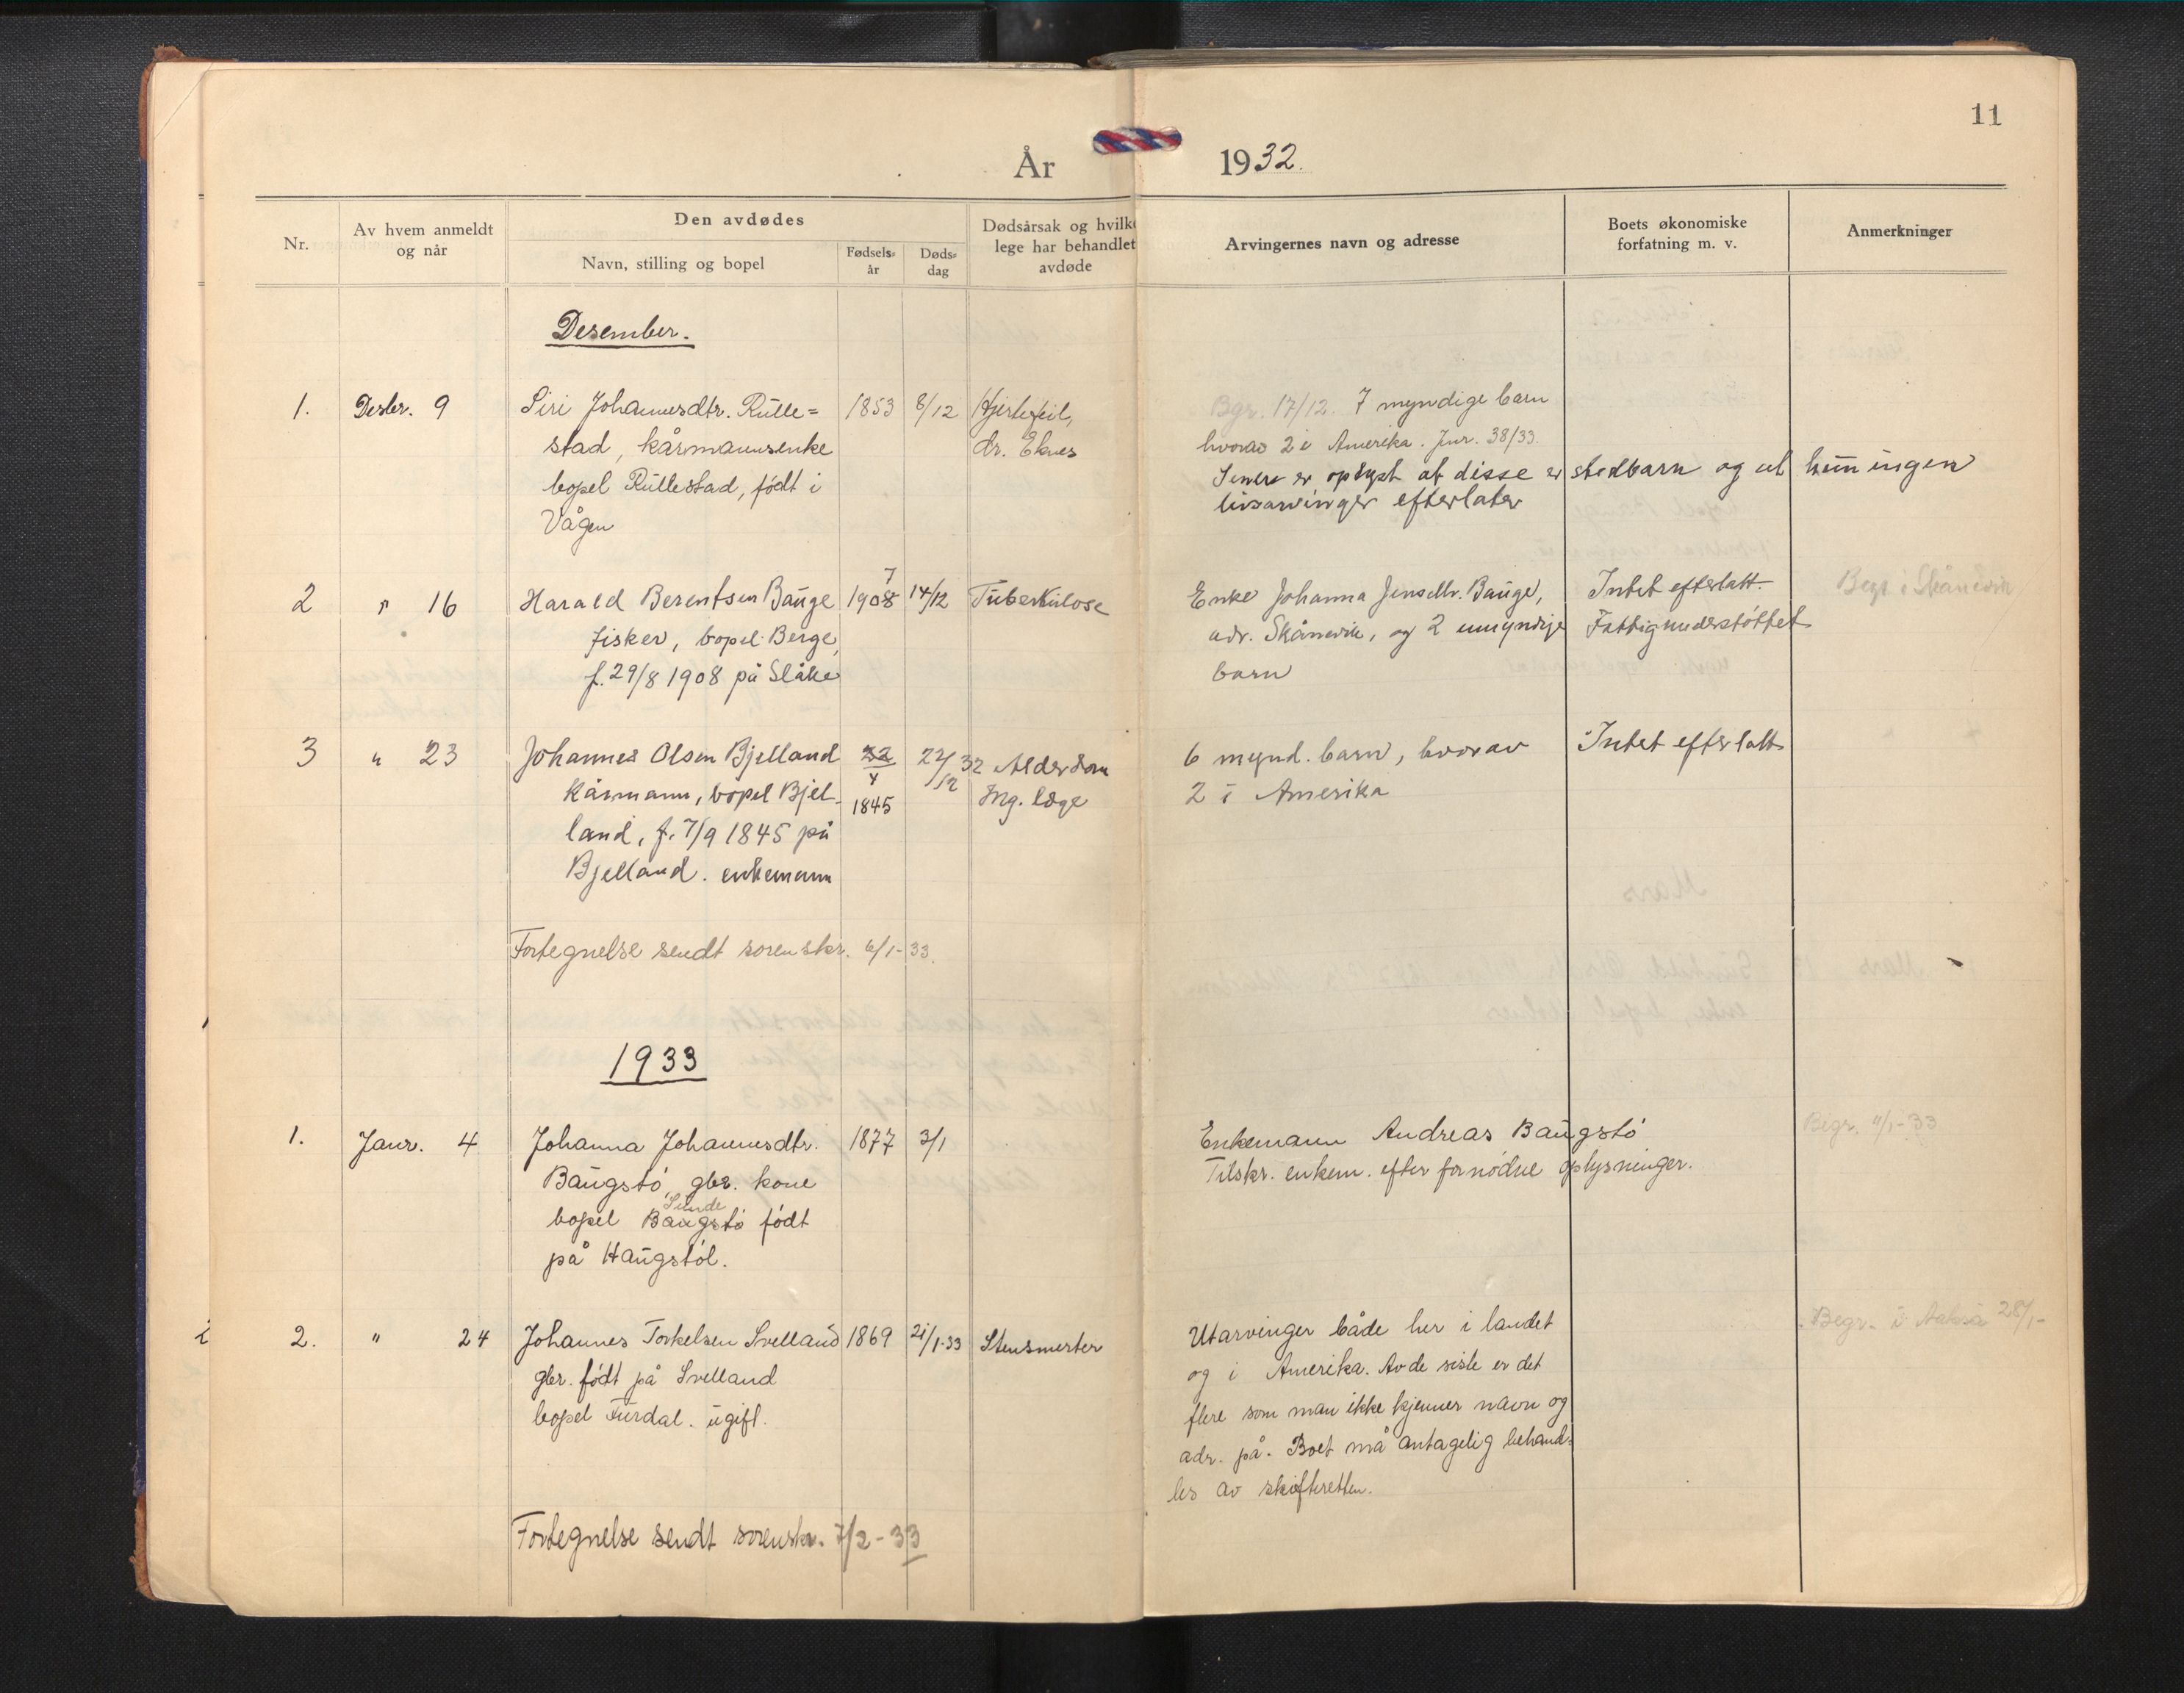 11
År 1932.
Nr.
Av hvem anmeldt
og når
Den avdødes
Navn, stilling og bopel
Fødsels-
år
Døds-
dag
Dødsårsak og hvilke
lege har behandlet
avdøde
Arvingernes navn og adresse
Boets økonomiske
forfatning m. v.
Anmerkninger
Desember.
1. Desbr. 9 Siri Johannesdtr. Rulle= 1853 8/12 Hjertefeil, Bgr. 17/12. 7 myndige barn
stad, kårmannsenke dr. Eknes hvorav 2 i Amerika. Jnr. 38/33.
bopel Rullestad, født i Senere er oplyst at disse er stedbarn og at hun ingen
Vågen livsarvinger efterlater
7
2 " 16 Harald Berentsen Bauge 1908 14/12 Tuberkulose Enke Johanna Jensdtr. Bauge, Intet efterlatt. Begr. i Skånevik
fisker, bopel Berge, adr. Skånevik, og 2 umyndige Fattigunderstøttet
f. 29/8 1908 på Slåke barn
3 " 23 Johannes Olsen Bjelland 22/12 32 Alderdom 6 mynd. barn, hvorav Intet efterlatt
kårmann, bopel Bjel- 1845 Ing. læge 2 i Amerika
land, f. 7/9 1845 på
Bjelland. enkemann
Fortegnelse sendt sorenskr. 6/1-33.
1933
1. Janr. 4 Johanna Johannesdtr. 1877 3/1 Enkemann Andreas Baugstø Begr. 11/1-33
Baugstø, gbr. kone Tilskr. enkem. efter fornødne oplysninger.
Sunde
bopel Baugstø født
på Haugstøl.
2. " 24 Johannes Torkelsen Svelland 1869 21/1-33 Stensmerter Utarvinger både her i landet Begr. i Aakra 28/1-
gbr. født på Svelland og i Amerika. Av de siste er det
bopel Furdal. ugift. flere som man ikke kjenner navn og
adr. på. Boet må antagelig behand=
les av skifteretten.
Fortegnelse sendt sorenskr. 7/2-33